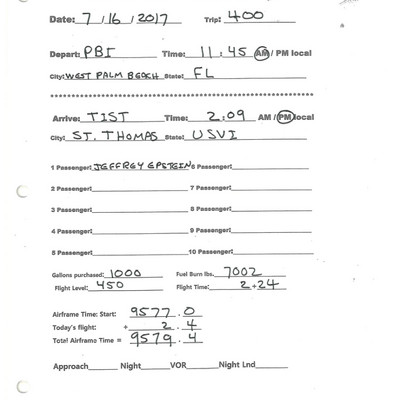 Date: 7/16/2017 Trip: 400
Depart: PBI Time: 11:45 AM / PM local
City: WEST PALM BEACH State: FL
************************************************************
Arrive: TIST Time: 2:09 AM / PM local
City: ST. THOMAS State: USVI
1 Passenger: JEFFREY EPSTEIN 6 Passenger:
2 Passenger: 7 Passenger:
3 Passenger: 8 Passenger:
4 Passenger: 9 Passenger:
5 Passenger: 10 Passenger:
Gallons purchased: 1000 Fuel Burn lbs. 7002
Flight Level: 450 Flight Time: 2+24
Airframe Time: Start: 9577.0
Today's flight: + 2.4
Total Airframe Time = 9579.4
Approach Night VOR Night Lnd